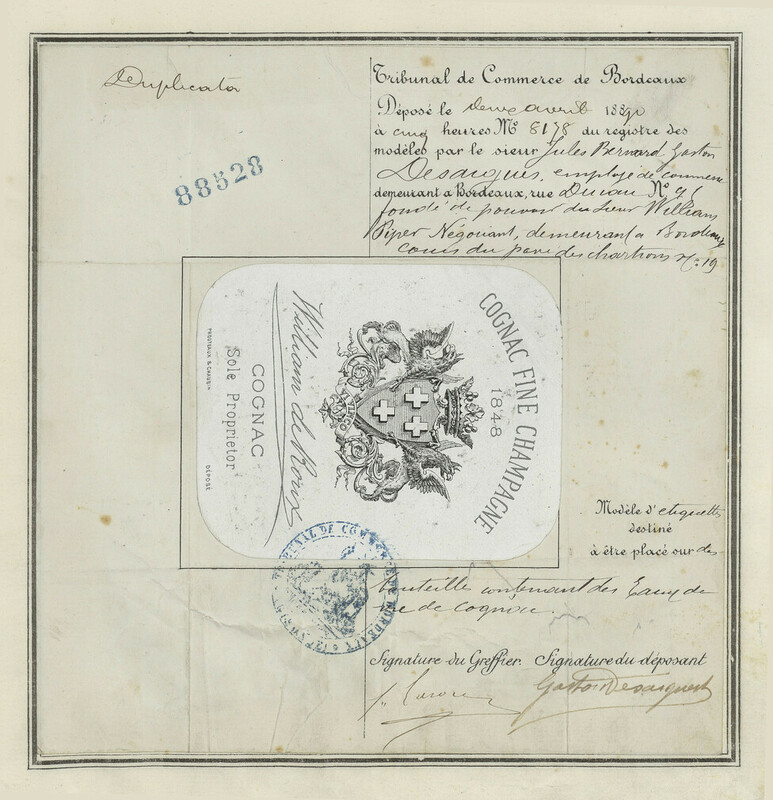 Duplicata
88528
Tribunal de Commerce de Bordeaux
Déposé le deux avril 1890
à cinq heures Nº 8178 du registre des
modèles par le sieur Jules Bernard Gaston
Desarques, employé de commerce
demeurant a Bordeaux, rue Nº 91
fondé de pouvoir du sieur William
Piper Négociant, demeurant a Bordeaux
cours du pavé des chartrons Nº 19
COGNAC FINE CHAMPAGNE
1848
William de Roux
COGNAC
Sole Proprietor
DÉPOSÉ
Modèle d'etiquette
destiné
à être placé sur des
bouteille contenant des Eaux de
vie de cognac.
TRIBUNAL DE COMMERCE DE BORDEAUX
Signature du Greffier. Signature du déposant